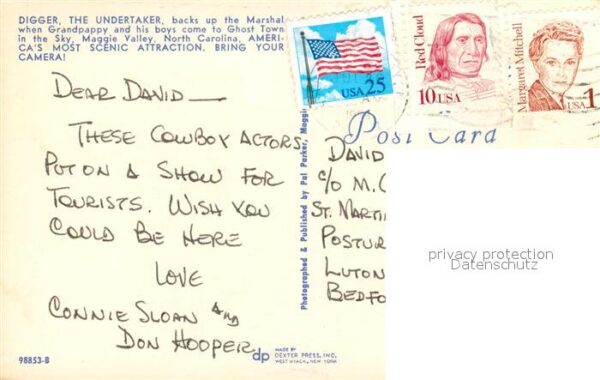 DIGGER, THE UNDERTAKER, backs up the Marshal
when Grandpappy and his boys come to Ghost Town
in the Sky, Maggie Valley, North Carolina, AMERI-
CA'S MOST SCENIC ATTRACTION. BRING YOUR
CAMERA!
DEAR DAVID —
THESE COWBOY ACTORS
PUT ON A SHOW FOR
TOURISTS. WISH YOU
COULD BE HERE
LOVE
CONNIE SLOAN AND
DON HOOPER
98853-B
Photographed & Published by Pal Parker, Maggie
dp
MADE BY
DEXTER PRESS, INC.
WEST NYACK, NEW YORK
USA 25
Red Cloud
10 USA
Margaret Mitchell
USA 1
Post Card
DAVID
C/O M.C
ST. MARTI
POSTUR
LUTON
BEDFO
privacy protection
Datenschutz